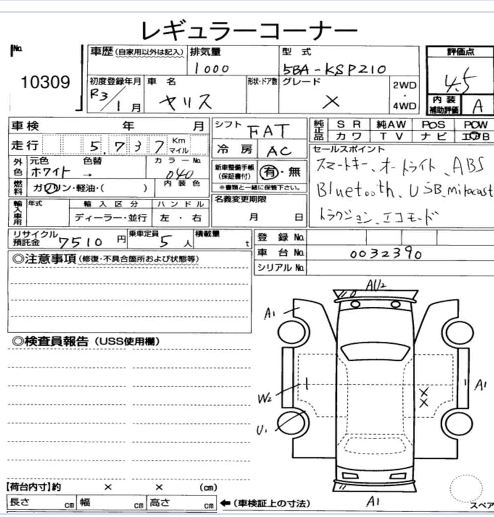 レギュラーコーナー
No. 10309
車歴(自家用以外は記入) 排気量 1000 型式 5BA-KSP210 評価点 4.5
初度登録年月 R3/1月 車名 ヤリス 形状・ドア数 グレード X 2WD・4WD 内装補助評価 A
車検 年 月 シフト FAT 純正品 SR 純AW POS POW
カワ TV ナビ エアB
走行 5,737 Km マイル 冷房 AC セールスポイント
外色 元色 ホワイト 色替 → カラーNo. 040 新車整備手帳(保証書付) 有・無 スマートキー、オートライト、ABS
燃料 ガソリン・軽油・( ) 内装色 ※書類と一緒に保管下さい。 Bluetooth、USB、
輸入車用 年式 輸入区分 ハンドル 名義変更期限 トラクション、エコモード
ディーラー・並行 左・右 月 日
リサイクル預託金 7510円 乗車定員 5人 積載量 t 登録No.
車台No. 0032390
◎注意事項(修復・不具合箇所および状態等) シリアルNo.
AU2
A1
◎検査員報告(USS使用欄)
A1
W2
X
X
U1
【荷台内寸】約 × × (cm)
長さ cm 幅 cm 高さ cm ←(車検証上の寸法)
A1
スペア